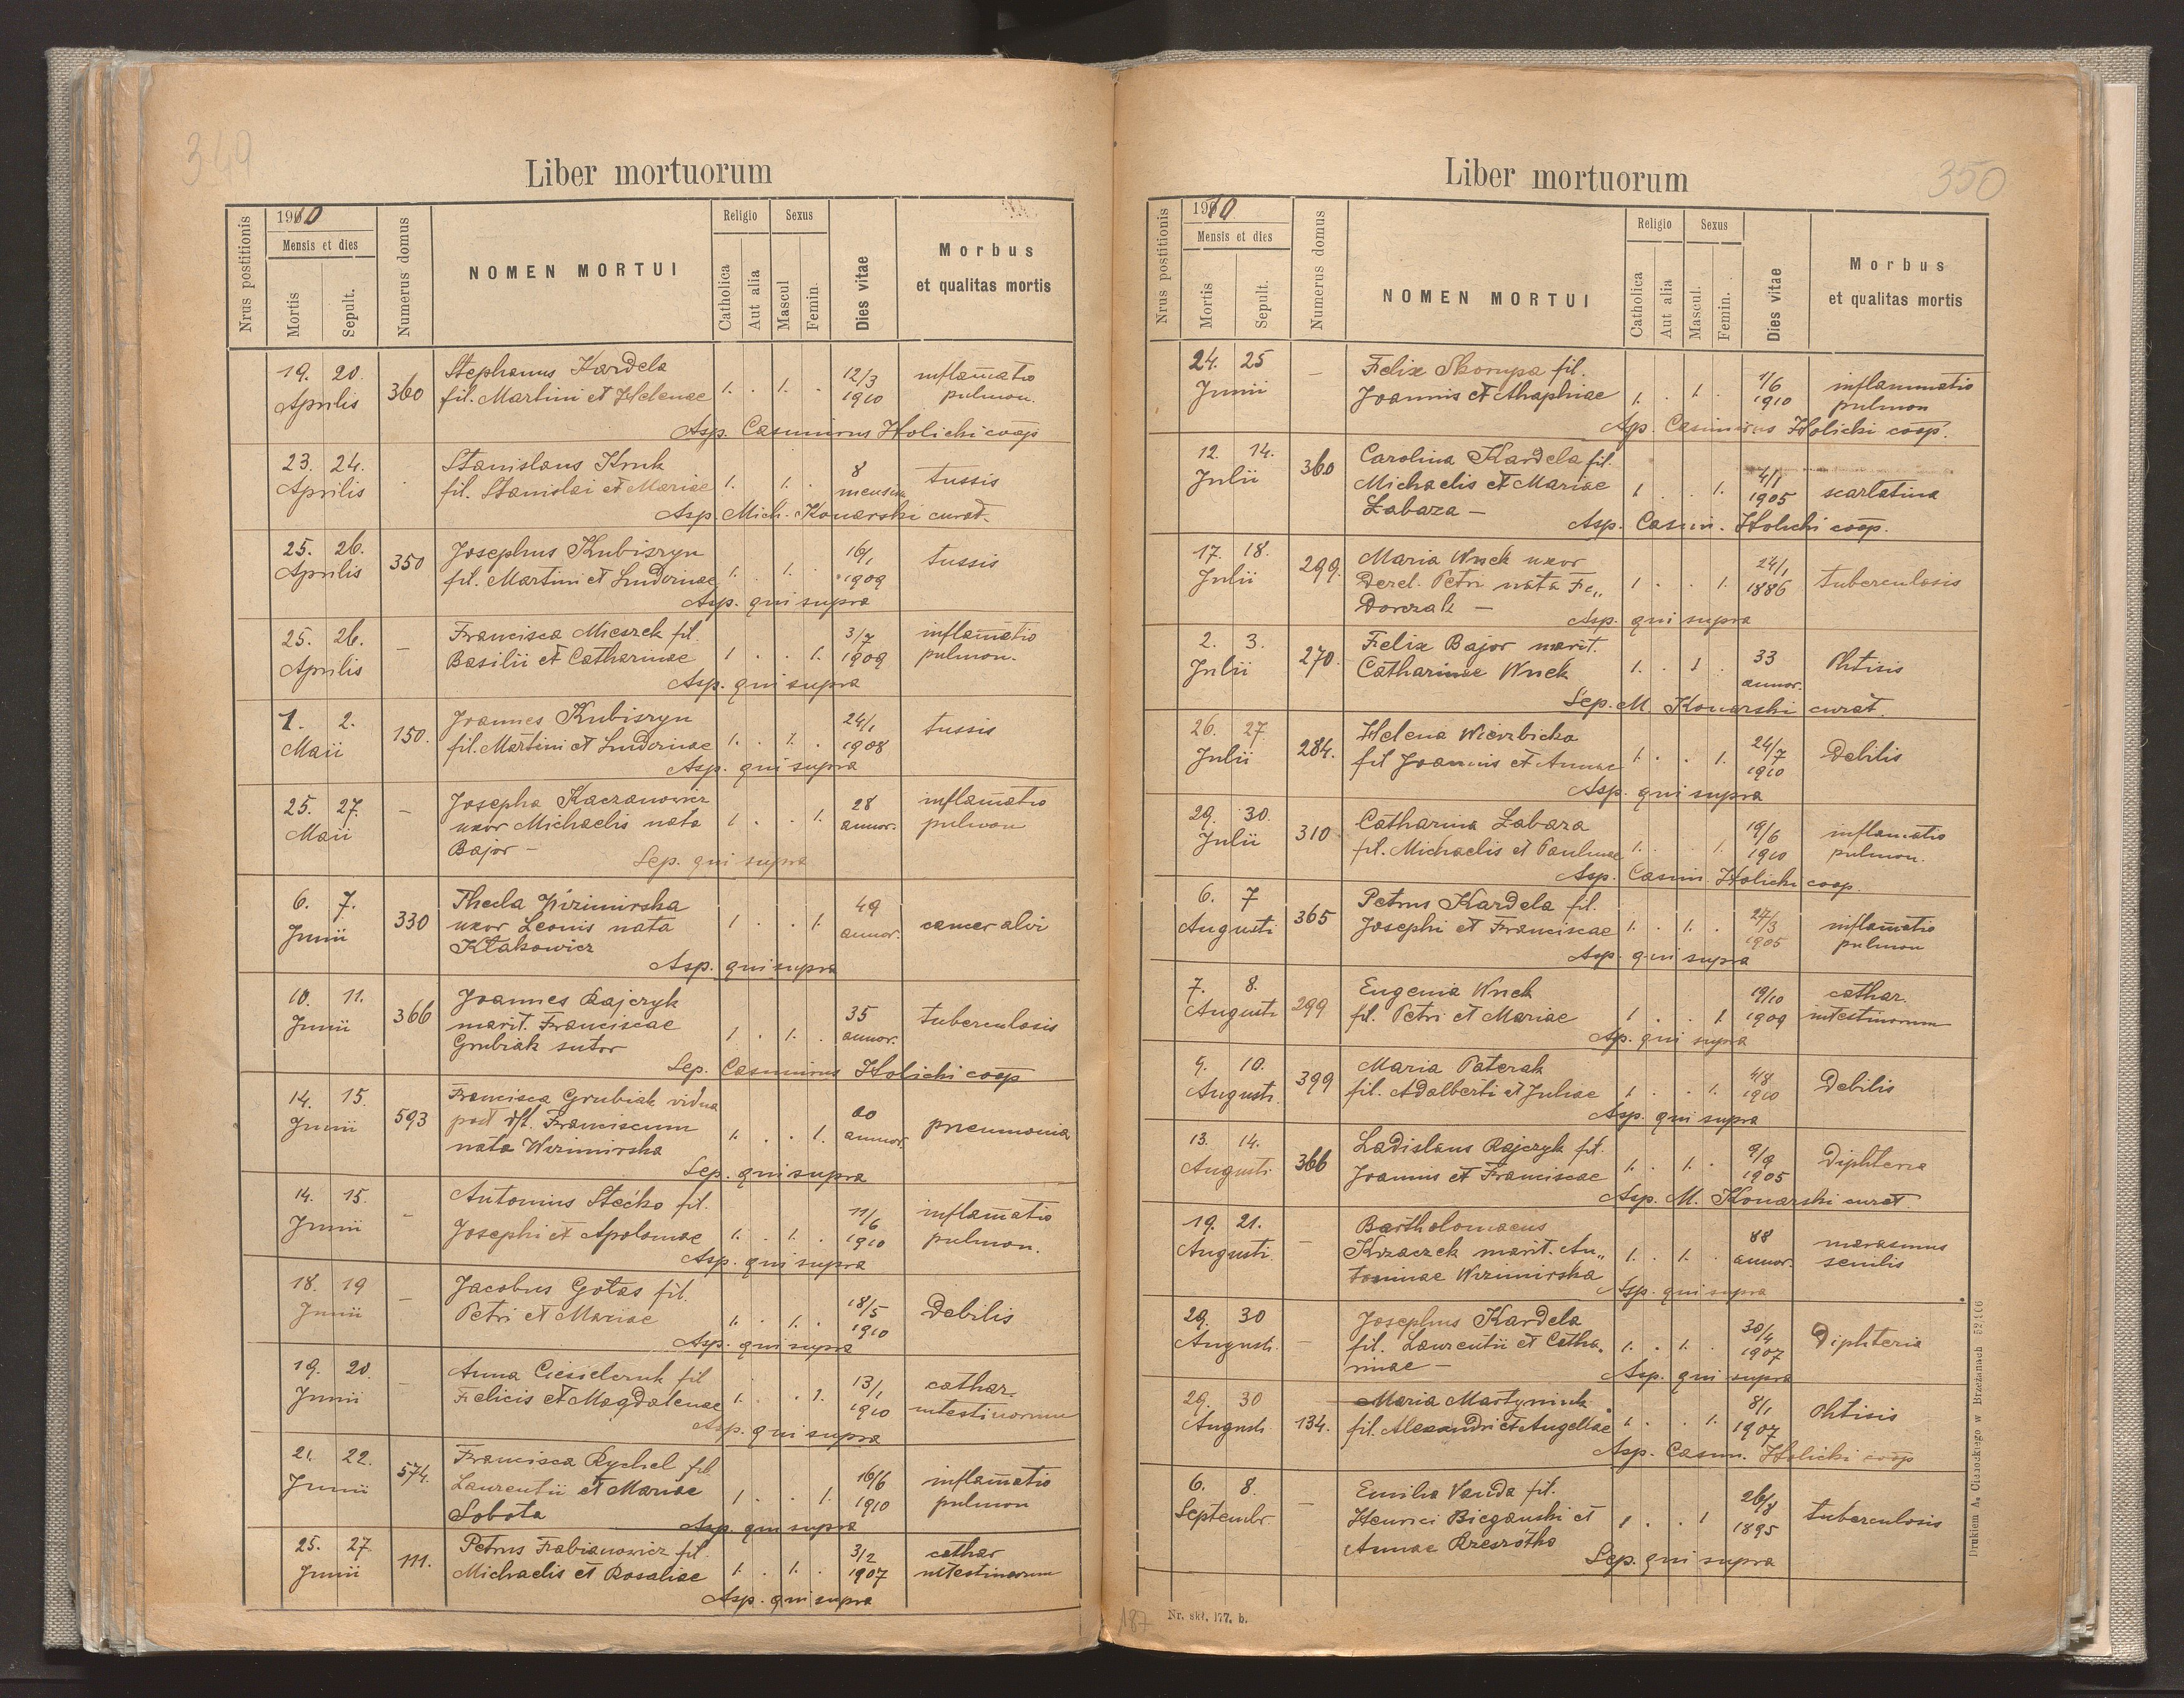 349
Liber mortuorum
Nrus postitionis
1910
Mensis et dies
Mortis
Sepult.
Numerus domus
NOMEN MORTUI
Religio
Catholica
Aut alia
Sexus
Mascul
Femin.
Dies vitae
Morbus
et qualitas mortis
19. 20. Aprilis 360 Stephanus Kardela 12/3 inflam̄atio
fil. Martini et Helenae 1. . 1. . 1910 pulmon.
Asp. Casimirus Holicki coop
23. 24. Aprilis Stanislaus Kruk 8 tussis
fil. Stanislai et Mariae 1. . 1. . mensium
Asp. Mich. Konarski curat.
25. 26. Aprilis 350 Josephus Kubiszyn 16/1 tussis
fil. Martini et Ludovicae 1. . 1. . 1909
Asp. qui supra
25. 26. Aprilis — Francisca Mieszek fil. 3/7 inflam̄atio
Basilii et Catharinae 1 . . 1. 1909 pulmon.
Asp. qui supra
1. 2. Maii 150. Joannes Kubiszyn 24/1 tussis
fil. Martini et Ludovicae 1. . 1. . 1908
Asp. qui supra
25. 27. Maii — Josepha Kaczanowicz 28 inflam̄atio
uxor Michaelis nata 1 . . 1. annor. pulmon
Bajor —
Sep. qui supra
6. 7. Junii 330 Thecla Wizimirska 49 cancer alvi
uxor Leonis nata 1 . . 1. annor.
Kłakowicz
Asp. qui supra
10. 11. Junii 366 Joannes Rajczyk 35 tuberculosis
marit. Franciscae 1 . 1. . annor.
Grubiak sutor
Sep. Casimirus Holicki coop
14. 15. Junii 593 Francisca Grubiak vidua 60 pneumonia
post dft. Franciscum 1. . . 1. annor.
nata Wizimirska
Sep. qui supra
14. 15. Junii — Antonius Stećko fil. 11/6 inflam̄atio
Josephi et Apoloniae 1. . 1. . 1910 pulmon.
Asp. qui supra
18. 19 Junii — Jacobus Gotas fil. 18/5 Debilis
Petri et Mariae 1. . 1. . 1910
Asp. qui supra
19. 20. Junii — Anna Ciesielczuk fil 13/1 cathar.
Felicis et Magdalenae 1. . . 1. 1910 intestinorum
Asp. qui supra
21. 22. Junii 574. Francisca Rychel fil. 16/6 inflam̄atio
Laurentii et Mariae 1 . . 1. 1910 pulmon
Sobota
Asp. qui supra
25. 27. Junii 111. Petrus Fabianowicz fil. 3/2 cathar
Michaelis et Rosaliae 1. . 1. . 1907 intestinorum
Asp. qui supra
350
Liber mortuorum
Nrus postitionis
1910
Mensis et dies
Mortis
Sepult.
Numerus domus
NOMEN MORTUI
Religio
Catholica
Aut alia
Sexus
Mascul.
Femin.
Dies vitae
Morbus
et qualitas mortis
24. 25 Junii — Felix Skorupa fil. 1/6 inflammatio
Joannis et Ahaphiae 1. . 1. . 1910 pulmon
Asp. Casimirus Holicki coop.
12. 14. Julii 360 Carolina Kardela fil.
Michaelis et Mariae 1 . . 1. 4/1 1905 scarlatina
Łabaza —
Asp. Casim. Holicki coop.
17. 18. Julii 299. Maria Wnek uxor 24/1
Derel. Petri nata Fe„ 1 . . 1. 1886 tuberculosis
Dorczak —
Asp. qui supra
2. 3. Julii 270. Felix Bajor marit. 33 Phtisis
Catharinae Wnek 1. . 1 . annor.
Sep. M. Konarski curat.
26. 27. Julii 284. Helena Wierzbicka 24/7 Debilis
fil Joannis et Annae 1. . . 1. 1910
Asp. qui supra
29. 30. Julii 310 Catharina Łabaza 19/6 inflam̄atio
fil. Michaelis et Paulinae 1. . . 1. 1910 pulmon.
Asp. Casim Holicki coop.
6. 7 Augusti 365 Petrus Kardela fil. 27/3 inflam̄atio
Josephi et Franciscae 1. . 1. . 1905 pulmon
Asp. qui supra
7. 8. Augusti 299 Eugenia Wnek 19/10 cathar.
fil. Petri et Mariae 1 . . 1. 1909 intestinorum
Asp. qui supra
9. 10. Augusti. 399 Maria Paterak 4/8 Debilis
fil. Adalberti et Juliae 1 . . 1. 1910
Asp. qui supra
13. 14. Augusti 366 Ladislaus Rajczyk fil. 9/9 Diphteria
Joannis et Franciscae 1. . 1. . 1905
Asp. M. Konarski curat.
19. 21. Augusti — Bartholomaeus 88 marasmus
Krzaczek marit. An„ 1. . 1. . annor. senilis
toninae Wizimirska
Asp. qui supra
29. 30 Augusti. — Josephus Kardela 30/4 Diphteria
fil. Laurentii et Catha„ 1. . 1. . 1907
rinae —
Asp. qui supra
29. 30 Augusti. 134. Maria Martyniuk 8/1 Phtisis
fil. Alexandri et Angellae 1. . . 1. 1907
Asp. Casim. Holicki coop
6. 8. Septembr. — Emilia Vanda fil. 26/8
Henrici Bieganski et 1 . . 1 1895 tuberculosis
Annae Rzeszótko
Sep. qui supra
Drukiem A. Cienockiego w Brzeżanach
187
Nr. skł. 177. b.